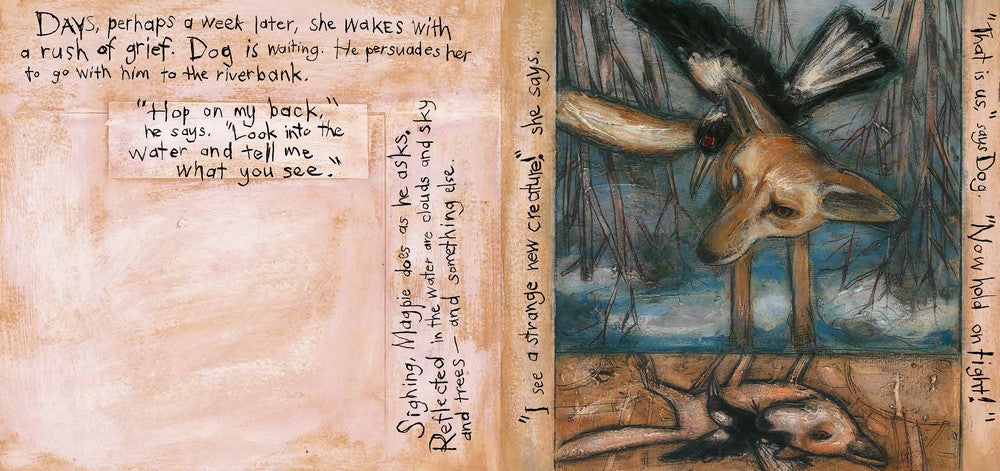 DAYS, perhaps a week later, she wakes with
a rush of grief. Dog is waiting. He persuades her
to go with him to the riverbank.
"Hop on my back,"
he says. "Look into the
water and tell me
what you see."
Sighing, Magpie does as he asks.
Reflected in the water are clouds and sky
and trees — and something else.
"I see a strange new creature!" she says.
"That is us," says Dog. "Now hold on tight!"